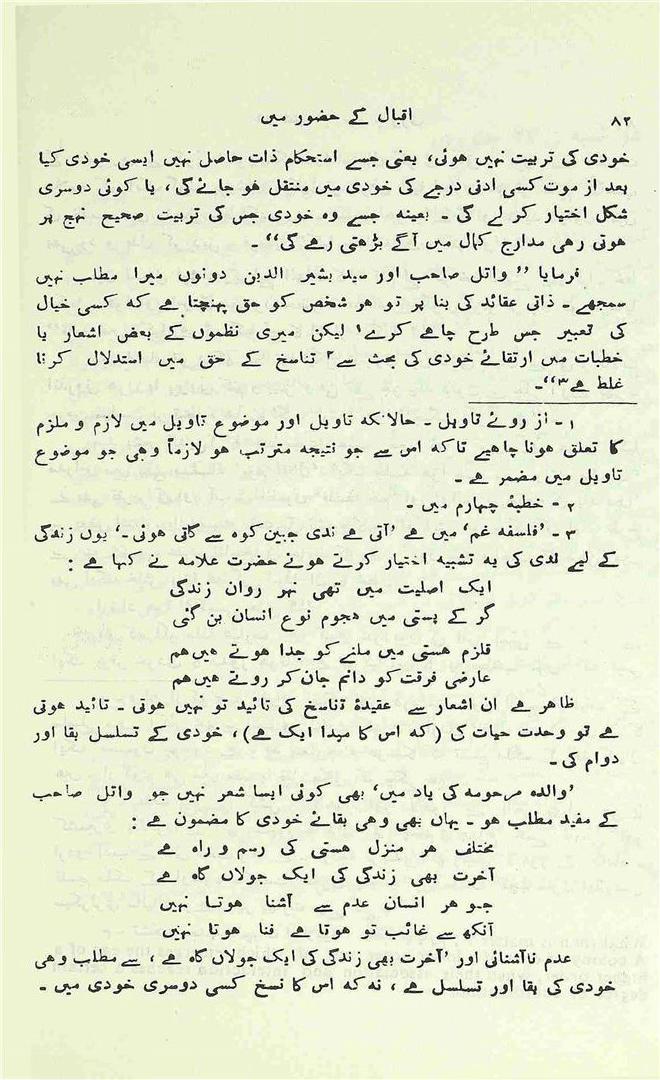 ۸۲
اقبال کے حضور میں
خودی کی تربیت نہیں ہوئی، یعنی جسے استحکام ذات حاصل نہیں ایسی خودی کیا
بعد از موت کسی ادنیٰ درجے کی خودی میں منتقل ہو جائے گی، یا کوئی دوسری
شکل اختیار کر لے گی ۔ بعینہ جسے وہ خودی جس کی تربیت صحیح نہج پر
ہوتی رہی مدارج کمال میں آگے بڑھتی رہے گی‘‘ ۔
فرمایا ’’واتل صاحب اور سید بشیر الدین دونوں میرا مطلب نہیں
سمجھے ۔ ذاتی عقائد کی بنا پر تو ہر شخص کو حق پہنچتا ہے کہ کسی خیال
کی تعبیر جس طرح چاہے کرے۱ لیکن میری نظموں کے بعض اشعار یا
خطبات میں ارتقائے خودی کی بحث سے۲ تناسخ کے حق میں استدلال کرنا
غلط ہے۳‘‘۔
۱ - از روئے تاویل ۔ حالانکہ تاویل اور موضوع تاویل میں لازم و ملزم
کا تعلق ہونا چاہیے تاکہ اس سے جو نتیجہ مترتب ہو لازماً وہی جو موضوع
تاویل میں مضمر ہے ۔
۲ - خطبۂ چہارم میں ۔
۳ - ’فلسفہ غم‘ میں ہے ’آتی ہے ندی جبین کوہ سے گاتی ہوئی ۔‘ یوں زندگی
کے لیے ندی کی یہ تشبیہ اختیار کرتے ہوئے حضرت علامہ نے کہا ہے :
ایک اصلیت میں تھی نہر روان زندگی
گر کے پستی میں ہجوم نوع انسان بن گئی
قلزم ہستی میں ملنے کو جدا ہوتے ہیں ہم
عارضی فرقت کو دائم جان کر روتے ہیں ہم
ظاہر ہے ان اشعار سے عقیدۂ تناسخ کی تائید تو نہیں ہوتی ۔ تائید ہوتی
ہے تو وحدت حیات کی (کہ اس کا مبدا ایک ہے)، خودی کے تسلسل بقا اور
دوام کی ۔
’والدہ مرحومہ کی یاد میں‘ بھی کوئی ایسا شعر نہیں جو واتل صاحب
کے مفید مطلب ہو ۔ یہاں بھی وہی بقائے خودی کا مضمون ہے :
مختلف ہر منزل ہستی کی رسم و راہ ہے
آخرت بھی زندگی کی ایک جولاں گاہ ہے
جوہر انسان عدم سے آشنا ہوتا نہیں
آنکھ سے غائب تو ہوتا ہے فنا ہوتا نہیں
عدم ناآشنائی اور ’آخرت بھی زندگی کی ایک جولاں گاہ ہے‘، سے مطلب وہی
خودی کی بقا اور تسلسل ہے، نہ کہ اس کا نسخ کسی دوسری خودی میں ۔